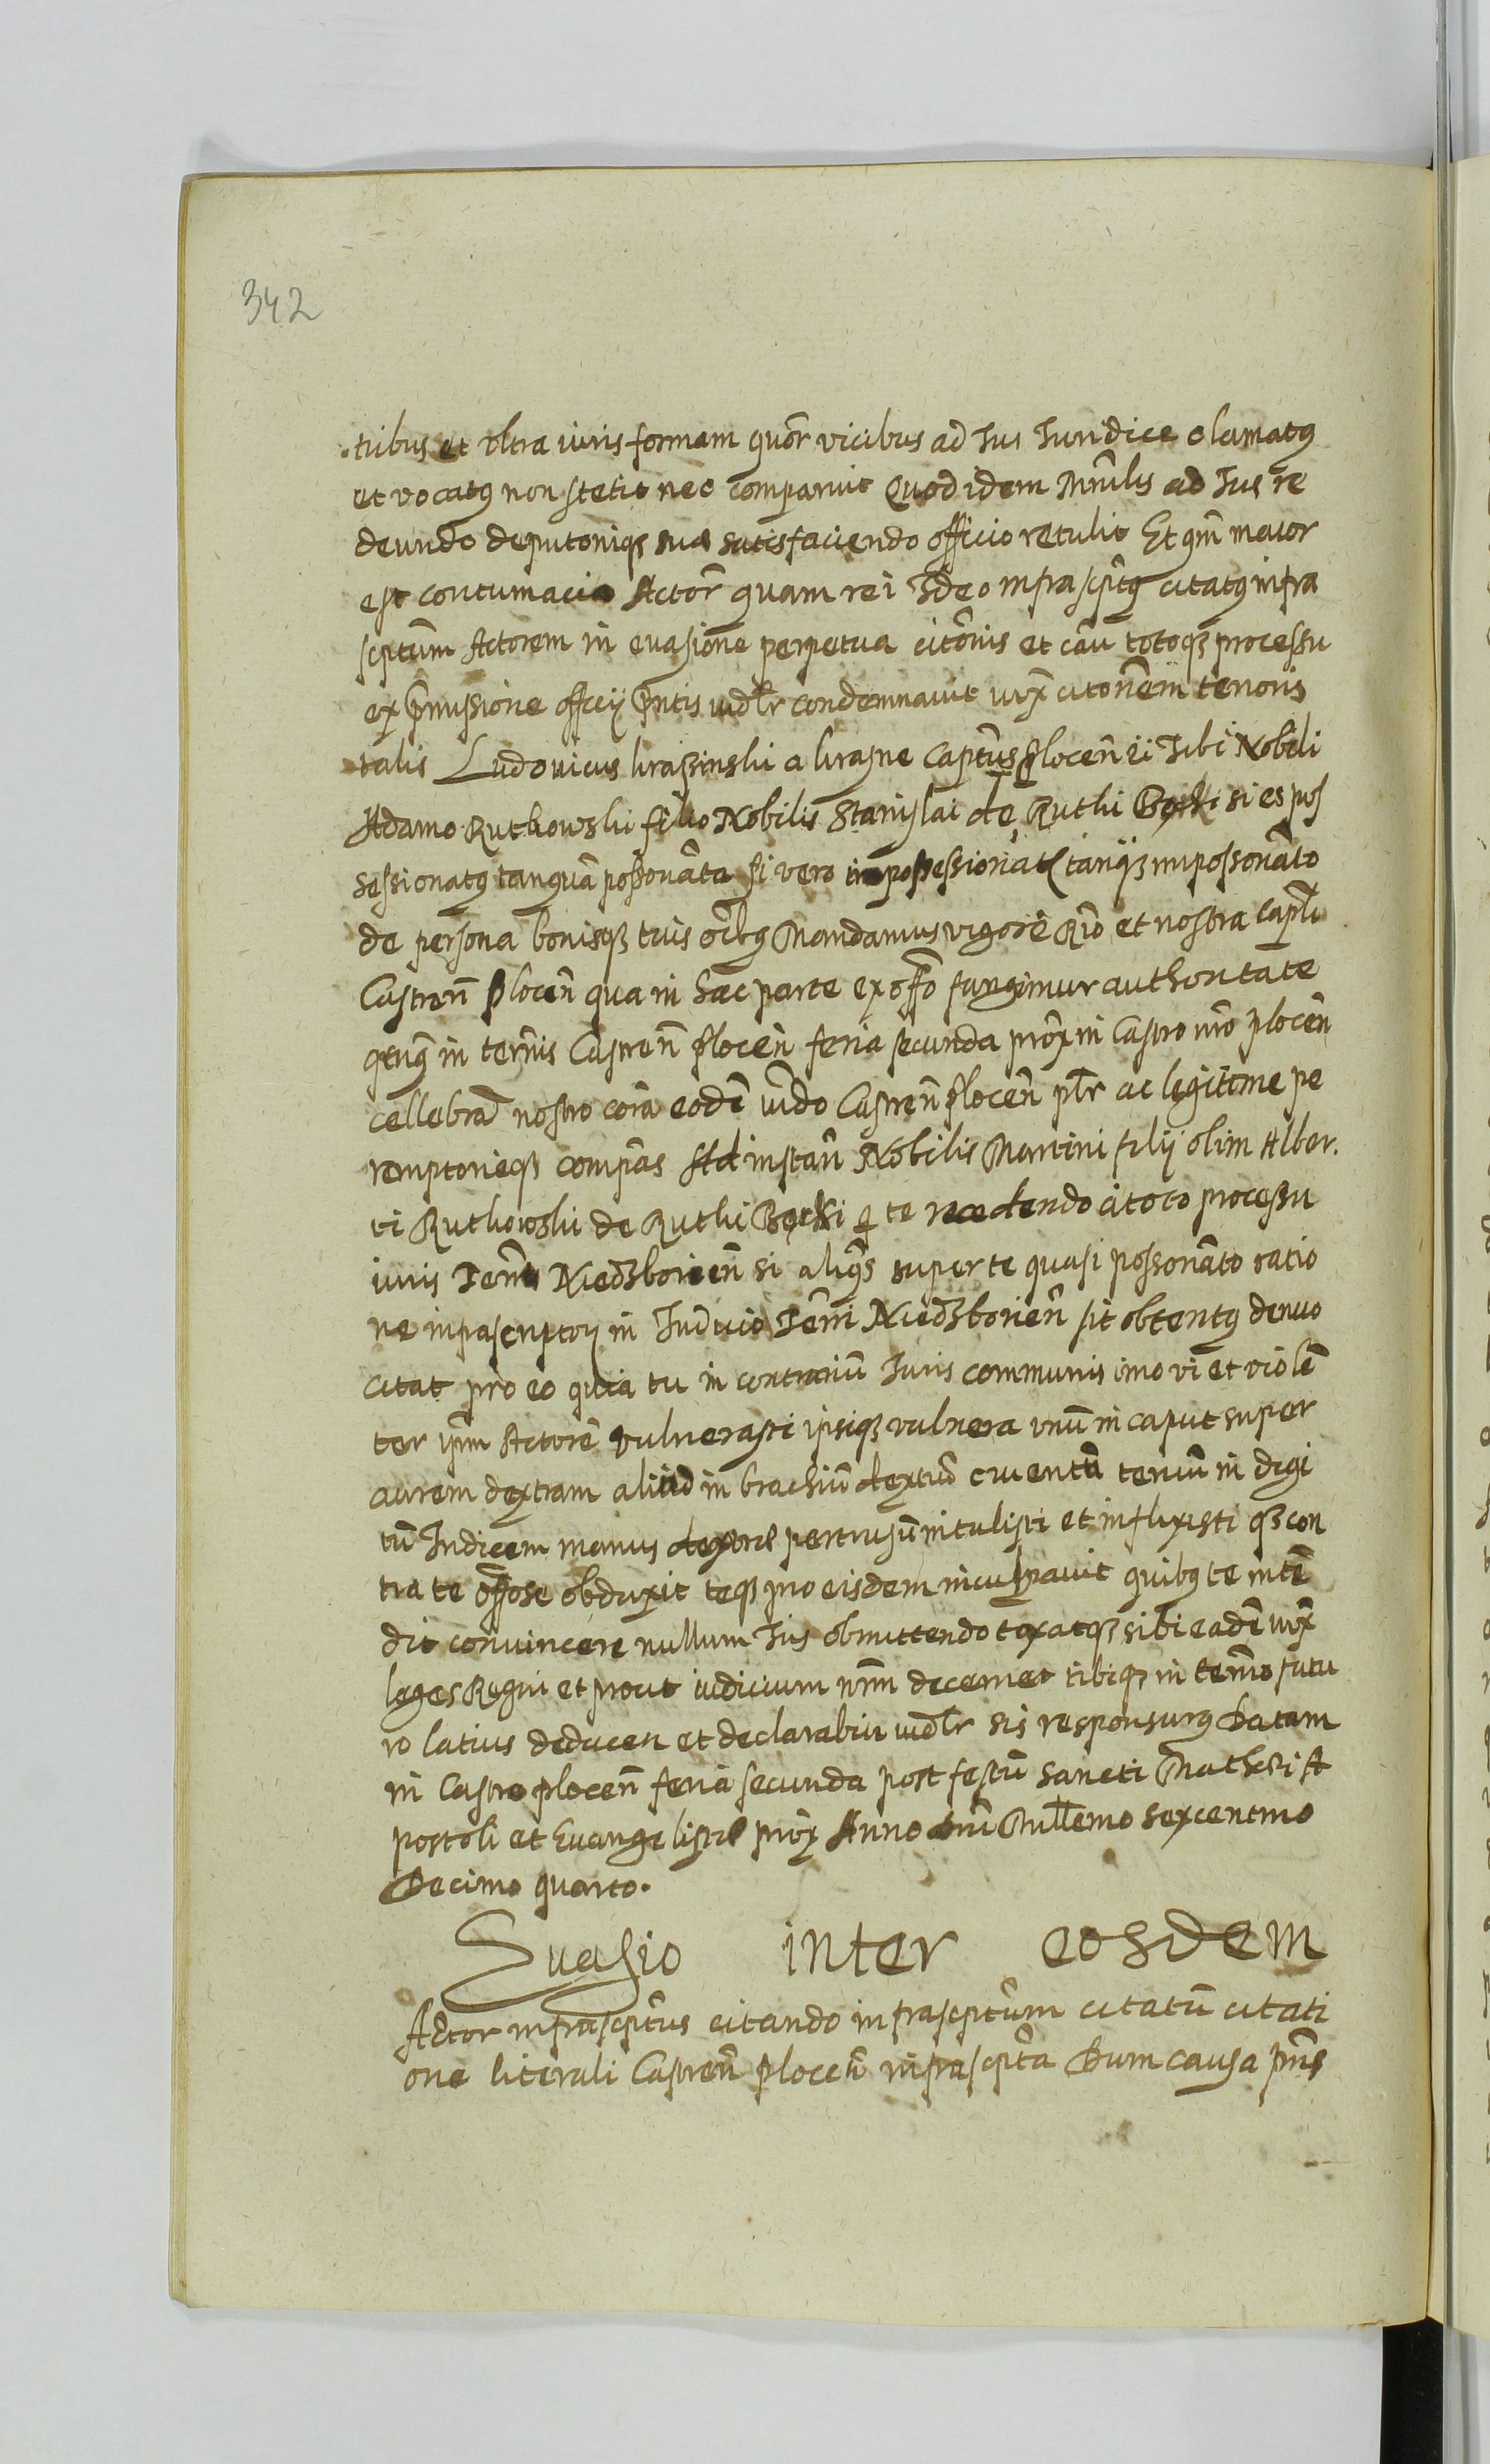 342
tribus et vltra iuris formam quōr vicibus ad Ius Iuridice clamatꝗ
et vocatꝗ non stetit nec comparuit Quod idem Mnrlis ad Ius re
deundo deputoniqꝫ suæ satisfaciendo officio retulit Et qm̃ maior
est contumacia Actor̃ quam rei Ideo infrascptꝗ citatꝗ infra
scptum Actorem in euasione perpetua citõnis et cau totoqꝫ processu
ex p̃missione officÿ p̃ntis iudlr condemnauit iuxͣ citonẽm tenoris
talis Ludouicus krassinski a krasne Captũs plocen̄ ii Tibi Nobili
Adamo Rutkowski filio Nobilis Stanislai de Rutki Borki si es pos
sessionatꝗ tanquã possonãta si vero impossessionatꝗ tanqꝫ impossonãto
de persona bonisqꝫ tuis oĩbꝗ Mandamus vigore Rio et nostra Capli
Castren̄ plocen̄ qua in hac parte ex offo fungimur authoritate
qtnꝗ in ter̃nis Castren̄ plocen̄ feria secunda prox̃ in Castro nro plocen̄
cellebrañ nostro corã eodẽ iudo Castren̄ plocen̄ plr̃ ac legitime pe
remptorieqꝫ compãs Ad instan̄ Nobilis Martini filÿ olim Alber.
ti Rutkowski de Rutki Borki p te recedendo a toto processu
iuris Term̃ Niedzborien̄ si aliqs super te quasi possonãto ratio
ne infrascriptorꝝ in Iudicio Term̃i Niedzborien̄ sit obtentꝗ denuo
citat pro eo quia tu in contrariũ Iuris communis imo vi et violẽ
ter ipm̃ Actorẽ vulnerasti ipsiqꝫ vulnera vnũ in caput super
aurem dextram aliud in brachiũ dextrũ cruentũ tertiũ in digi
tũ Indicem manus dextræ pertrusũ intulisti et inflixisti qꝫ con
tra te offose obduxit teqꝫ pro eisdem inculpauit quibꝗ te intẽ
dit conuincere nullum Ius obmittendo taxatqꝫ sibi eadẽ iuxͣ
leges Regni et prout iudicium nrm̃ decernet tibiqꝫ in term̃o futu
ro latius deducen et declarabiu iudlr sis responsurꝗ Datam
in Castro plocen̄ feria secunda post festũ Sancti Mathei A
postoli et Euangelistæ prox̃ Anno dnĩ Millemo sexcentmo
Decimo quarto.
Euasio inter eosdem
Actor infrascptus citando infrascptum citatũ citati
one literali Castren̄ plocen̄ infrascpta Dum causa pns̃